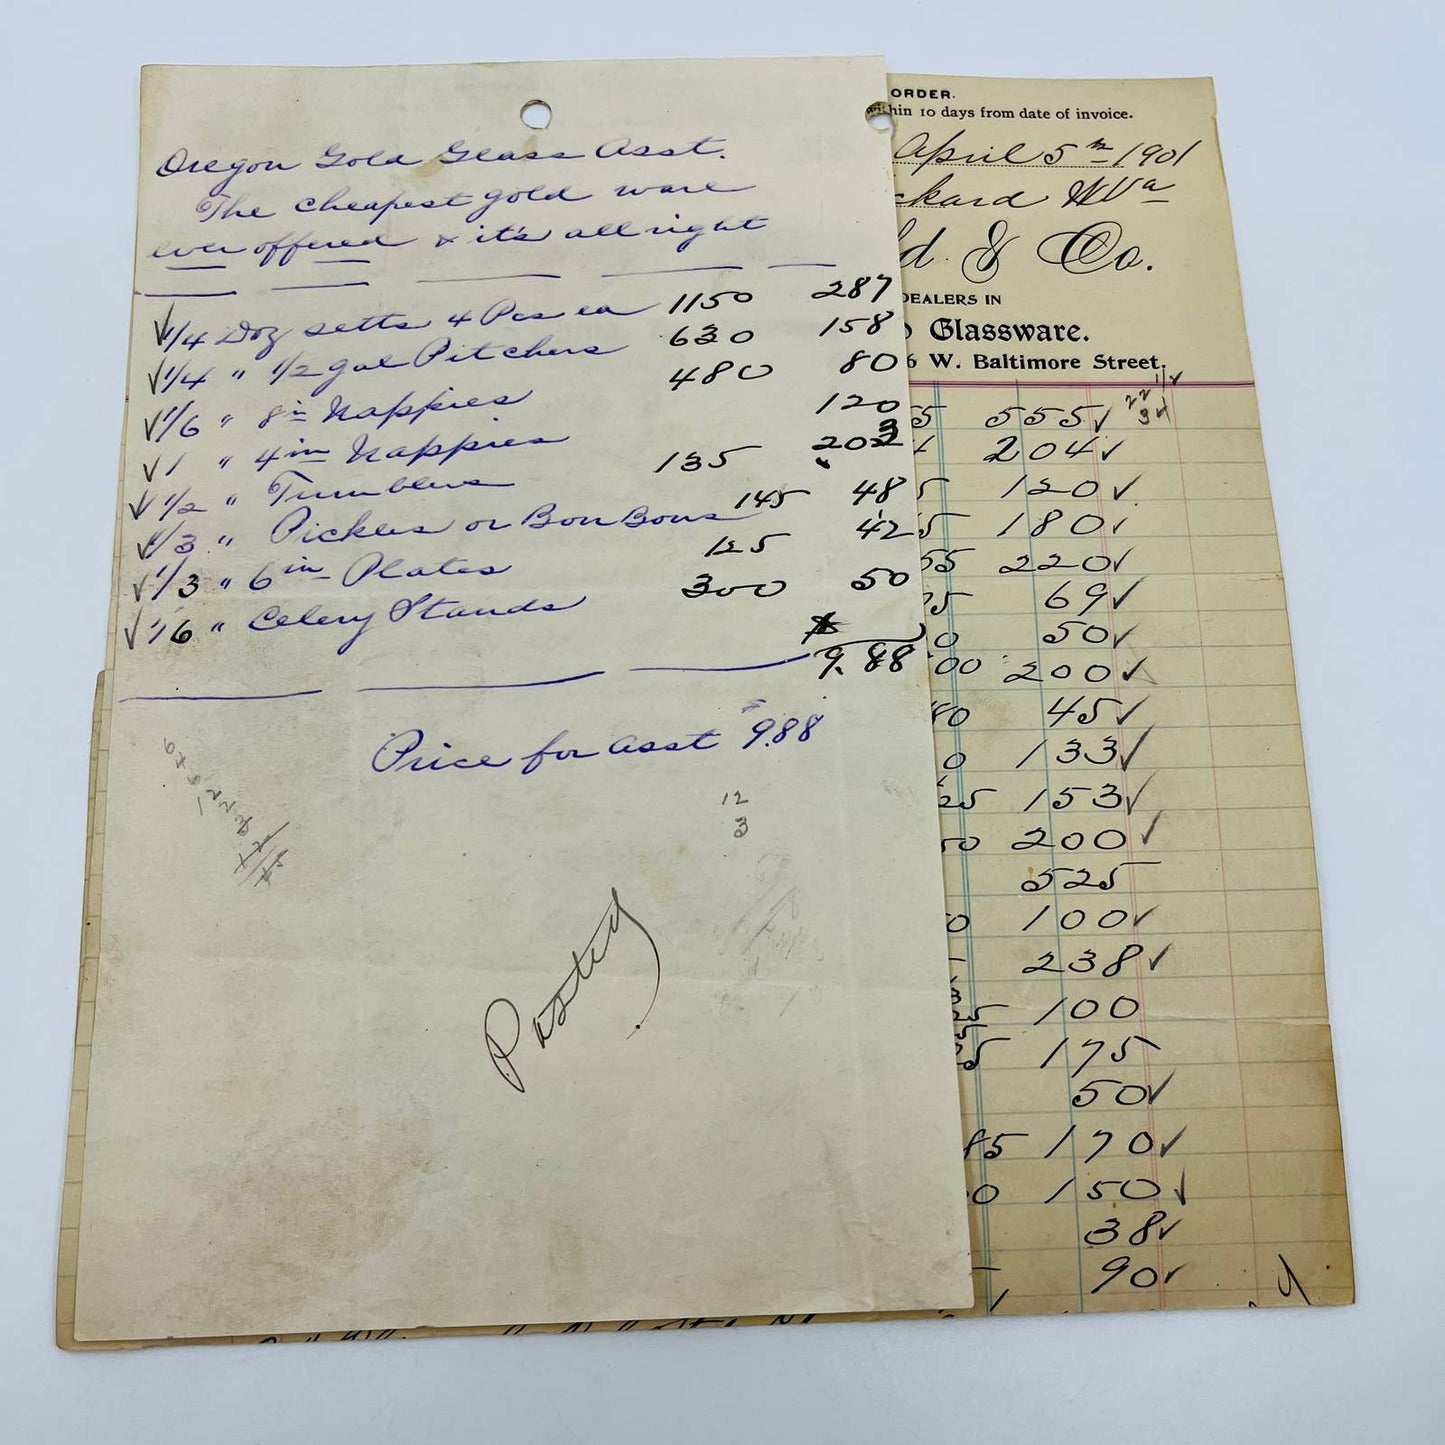 Oregon Gold Glass Asst.
The cheapest gold ware
ever offered & it's all right
1/4 Doz setts 4 Pcs ea 1150 287
1/4 " 1/2 gal Pitchers 630 158
1/6 " 8 in Nappies 480 80
1 " 4 in Nappies 120
1/2 " Tumblers 135 20
1/3 " Pickles or Bon Bons 145 48
1/3 " 6 in Plates 125 42
1/6 " Celery Stands 300 50
9.88
Price for asst 9.88
12
3
Posted
ORDER.
within 10 days from date of invoice.
April 5th 1901
ckard W Va
d. & Co.
DEALERS IN
Glassware.
6 W. Baltimore Street.
55 555
204
5 120
5 180
55 220
5 69
0 50
00 200
80 45
0 133
25 153
50 200
525
0 100
238
100
175
50
85 170
0 150
38
90